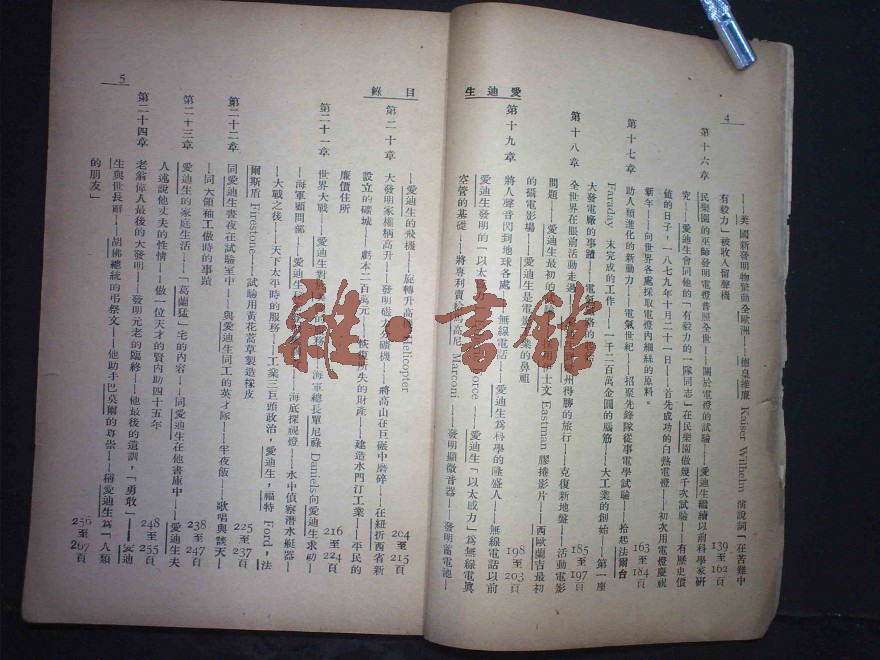 愛迪生
4
——美國新發明物驚動全歐洲——德皇維廉 Kaiser Wilhelm 演說詞「在苦難中
有毅力」被收入留聲機
139至162頁
第十六章 民樂園的巫師發明電燈普照全世——關於電燈的試驗——愛迪生繼續以前科學家研
究——愛迪生會同他的「有毅力的一隊同志」在民樂園做幾千次試驗——有歷史價
值的日子，一八七九年十月二十一日——首先成功的白熱電燈——初次用電燈慶祝
新年——向世界各處採取電燈內細絲的原料。
163至184頁
第十七章 助人類進化的新動力——電氣世紀——招聚先鋒隊從事電學試驗——拾起法爾台
Faraday 未完成的工作——一千二百萬金圓的腦筋——大工業的創始——第一座
大發電廠的事蹟——電氣
185至197頁
第十八章 全世界在眼前活動走過
得勝的旅行——克復新地盤——活動電影
問題——愛迪生最初的
士文 Eastman 膠捲影片——西歐蘭吉最初
的攝電影場——愛迪生是電
業的鼻祖
198至203頁
第十九章 將人聲音閃到地球各處——無線電話——愛迪生爲科學的隆盛人——無線電話以前
愛迪生發明的「以太
orce——愛迪生「以太威力」爲無線電眞
空管的基礎——將專利賣給
高尼 Marconi——發明顯微音器——發明蓄電池——
目錄
5
——愛迪生的飛機——旋轉升高機 Helicopter
204至215頁
第二十章 大發明家權柄高升——發明磁力分礦機——將高山在巨礟中磨碎——在紐折西省新
設立的礦城——虧本二百萬元——恢復所失的財產——建造水門汀工業——平民的
廉價住所
216至224頁
第二十一章 世界大戰——愛迪生對於
海軍總長單尼祿 Daniels 向愛迪生求助——
——海軍顧問部——愛迪生
海底探視燈——水中偵察潛水艇器——
——大戰之後——天下太平時的服務——工業三巨頭政治，愛迪生，福特 Ford，法
爾斯盾 Firestone——試驗用黃花蒿草製造採皮
225至237頁
第二十二章 同愛迪生晝夜在試驗室中——與愛迪生同工的英才隊——半夜飯——歌唱與談天——
——同大領袖工做時的事蹟
238至247頁
第二十三章 愛迪生的家庭生活——「葛蘭猛」宅的內容——同愛迪生在他書庫中——愛迪生夫
人述說他丈夫的性情——做一位天才的賢內助四十五年
248至255頁
第二十四章 老翁偉人最後的大發明——發明元老的臨終——他最後的遺訓，「勇敢」——愛迪
生與世長辭——胡佛總統的弔祭文——他助手巴莫爾的尊崇——稱愛迪生爲「人類
的朋友」
256至267頁
雜·書館